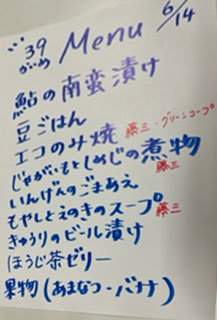 39
がめ Menu 6/14
鮎の南蛮漬け
豆ごはん
エコのみ焼 藤三・グリーンコープ
じゃがいもとしめじの煮物
藤三
いんげんのごまあえ
もやしとえのきのスープ 藤三
きゅうりのビール漬け
ほうじ茶ゼリー
果物(あまなつ・バナナ)